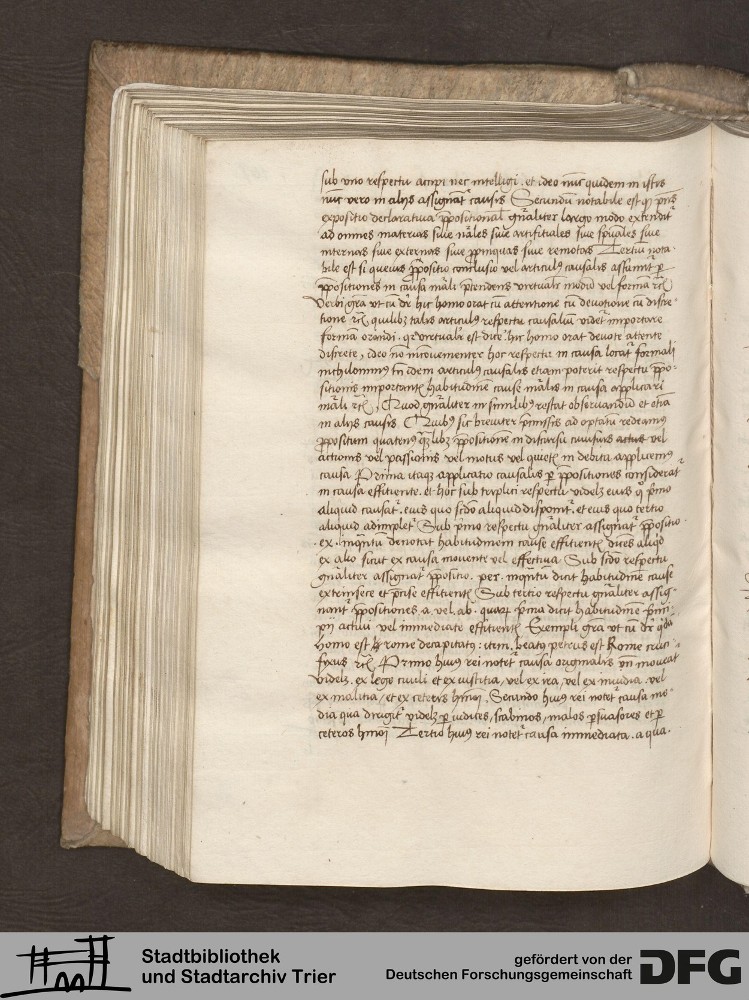 sub uno respectu accipi nec intelligi. et ideo nūc quidem in istis
nūc vero in alijs assignat causis Secundū notabile est qͥ pn̄s
expositio declaratiua ꝓpositional gn̄aliter largo modo extendit
ad omnes materias siue nāles siue artificiales siue sp̄uales siue
internas siue externas siue ꝓpinquas siue remotas Tertiū nota-
bile est si queuis ꝓpositio conclusio vel articulꝰ causalis assumit ꝑ
ꝓpositiones in causa māli p̄tendens virtualr̄ modū vel formā rc̄
Verbi grā vt cū dr̄ hic homo orat cū attentione cū deuotione cū discre-
tione rc̄ quilibꝫ talis articulꝰ respectu causaliū videt importare
formā orandi. qr virtualr̄ est dice hic homo orat deuote attente
discrete, ideo nō incōuenienter hoc respectu in causa locat formali
nichilominꝰ tn̄ idem articulꝰ causalis etiam poterit respectu ꝓpo-
sitionis importantꝭ habitudinem cause mālis in causa applicari
māli rc̄ Quod gn̄aliter in similibꝰ restat obseruandū et etiā
in alijs causis Quibꝰ sic breuiter p̄missis ad optatū redeamꝰ
ꝓpositum quatenꝰ qͣlibꝫ ꝓpositionē in discursu cuiusuis actus vel
actionis vel passionis vel motus vel quietꝭ in debita applicemꝰ
causa Prima itaqꝫ applicatio causalis ꝑ ꝓpositiones considerat
in causa efficiente. et hoc sub triplici respectu videlꝫ eius qͦ pͥmo
aliquid causat. eius quo scd̄o aliquid disponit. et eius quo tertio
aliquid adimplet Sub pͥmo respectu gn̄aliter assignat ꝓpositio
.ex. inqͣntū denotat habitudinem cause efficientꝭ dices aliqͥd
ex alio sicut ex causa mouente vel effectiua Sub scd̄o respectu
gn̄aliter assignat ꝓpositio. per. inqͣntū dicit habitudinē cause
extrinsece et p̄cise efficientꝭ Sub tertio respectu gn̄aliter assig-
nant ꝓpositiones a. vel. ab. quaꝝ pͥma dicit habitudinē pͥnci-
pij actiui vel immediate efficientꝭ Exempli grā vt cū dr̄
homo est rome decapitatꝰ: item. beatꝰ petrus est Rome cruci-
fixus rc̄ Primo huiꝰ rei notet causa originalis vn̄ moueat
videlꝫ. ex lege ciuili et ex iusticia, vel ex ira, vel ex inuidia. vel
ex malitia, et ex ceteris hmōi. Secundo huiꝰ rei notet causa me-
dia qua dirigit videlꝫ ꝑ iudices, scabinos, malos ꝑsuasores et ꝑ
ceteros hmōi Tertio huiꝰ rei notet causa immediata. a qua.
Stadtbibliothek
und Stadtarchiv Trier
gefördert von der
Deutschen Forschungsgemeinschaft
DFG